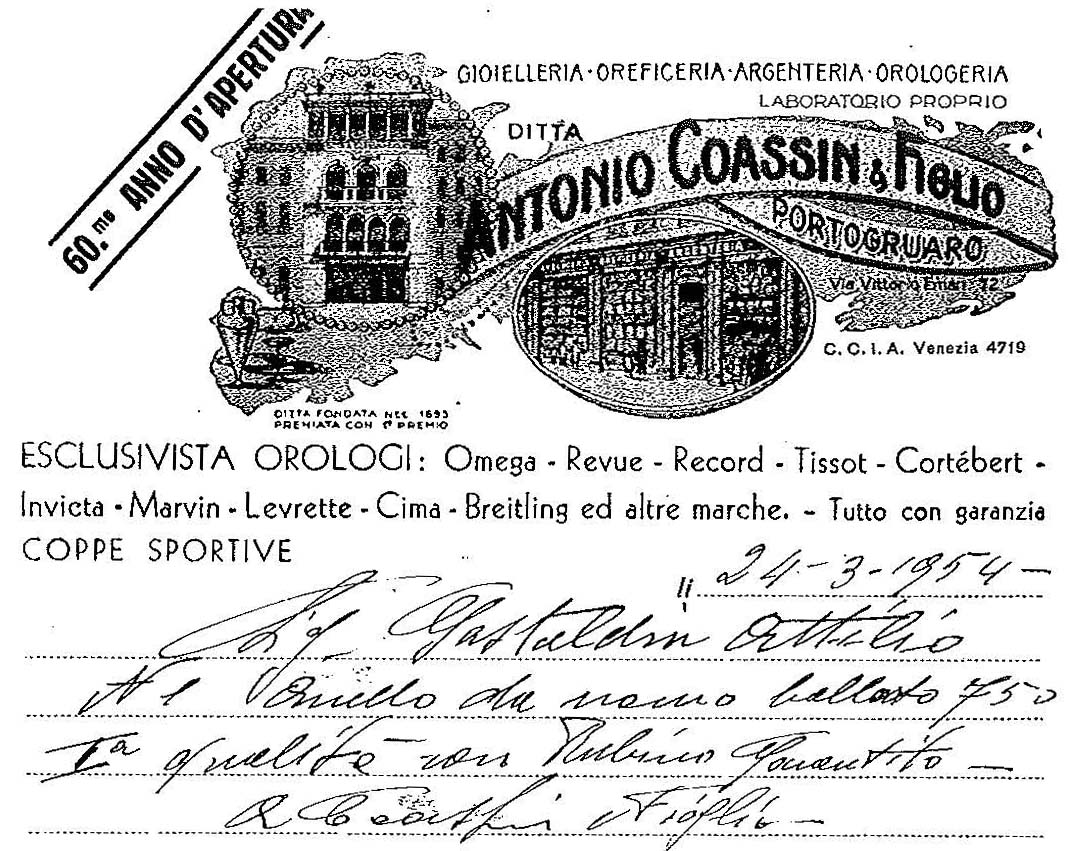 60.mo ANNO D'APERTURA
GIOIELLERIA · OREFICERIA · ARGENTERIA · OROLOGERIA
LABORATORIO PROPRIO
DITTA
ANTONIO COASSIN & FIGLIO
PORTOGRUARO
Via Vittorio Eman. 72
C. C. I. A. Venezia 4719
DITTA FONDATA NEL 1893
PREMIATA CON 1° PREMIO
ESCLUSIVISTA OROLOGI: Omega - Revue - Record - Tissot - Cortébert -
Invicta - Marvin - Levrette - Cima - Breitling ed altre marche. - Tutto con garanzia
COPPE SPORTIVE
li 24-3-1954-
Sig. Gastaldin Attilio
N 1 anello da uomo 750
Iª qualità con Rubino Garantito -
A Coassin Figlio -